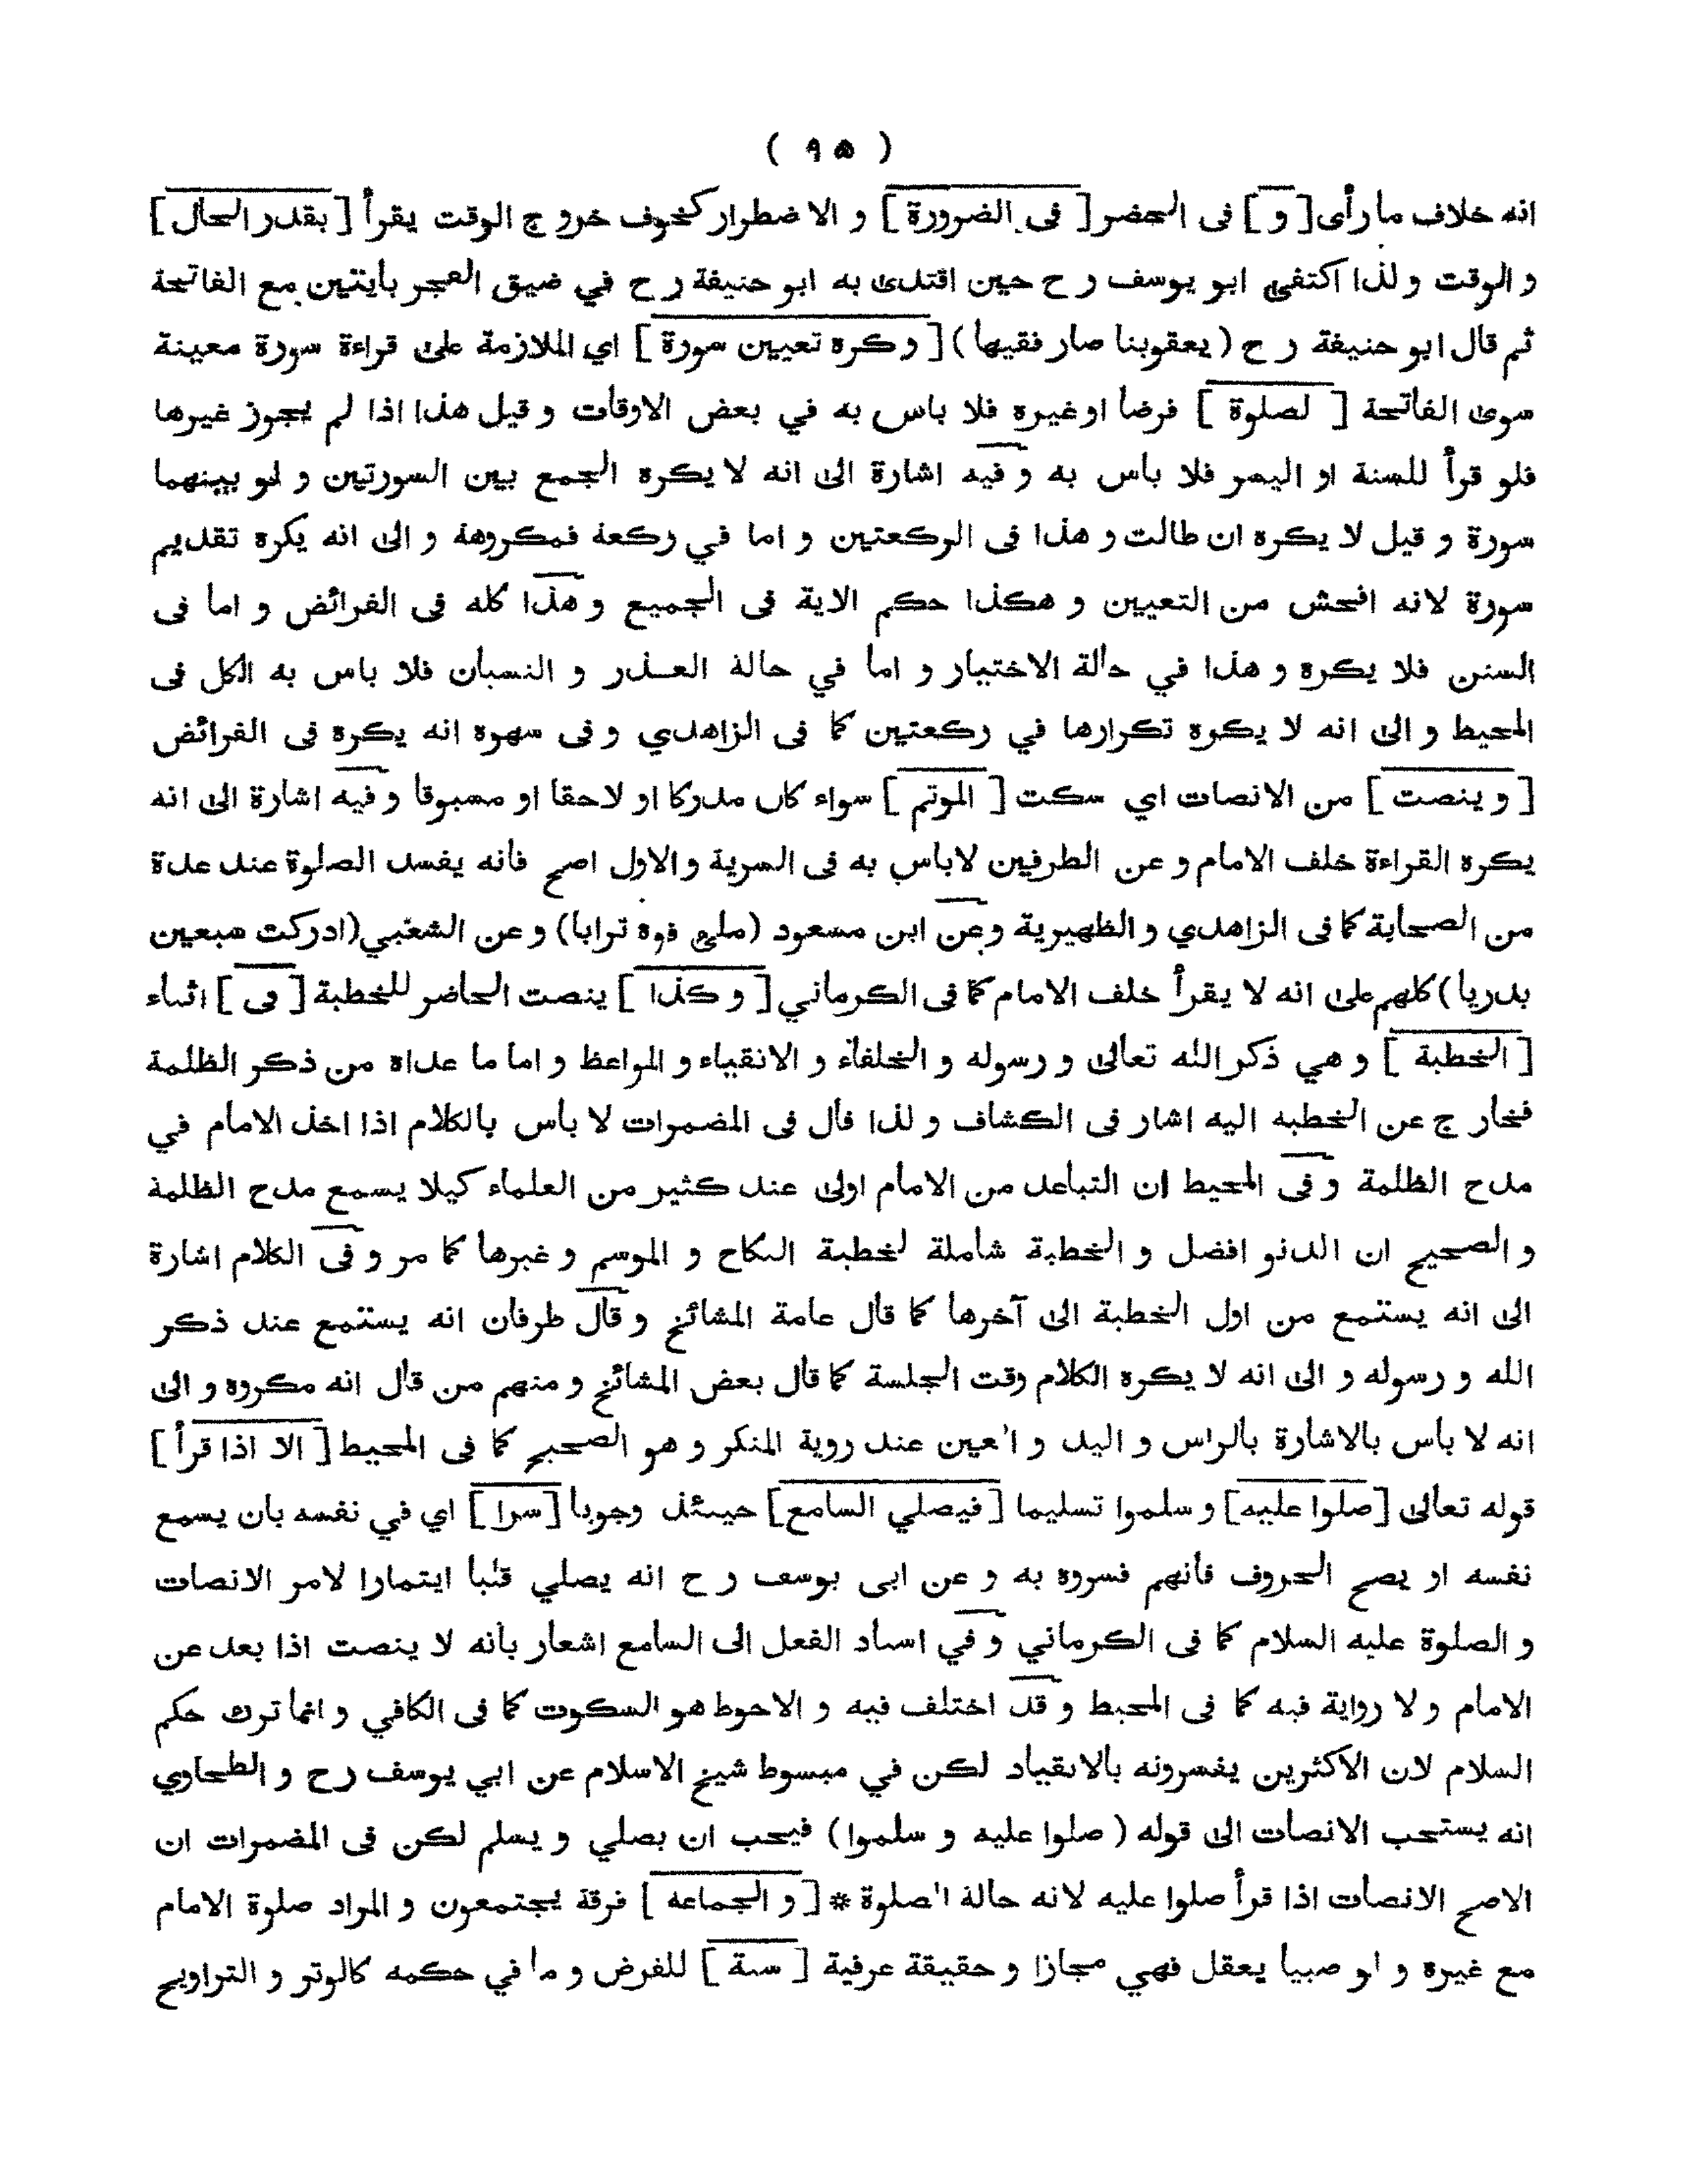 ( ٩٥ )
انه خلاف ما رأى [ و ] فى الحضر [ فى الضرورة ] و الاضطرار كخوف خروج الوقت يقرأ [ بقدر الحال ]
و الوقت و لذا اكتفى ابو يوسف رح حين اقتدى به ابو حنيفة رح في ضيق الفجر بأيتين مع الفاتحة
ثم قال ابو حنيفة رح ( يعقوبنا صار فقيها ) [ و كره تعيين سورة ] اي الملازمة على قراءة سورة معينة
سوى الفاتحة [ لصلوة ] فرضا او غيره فلا باس به في بعض الاوقات و قيل هذا اذا لم يجوز غيرها
فلو قرأ للسنة او اليسر فلا باس به و فيه اشارة الى انه لا يكره الجمع بين السورتين و لو بينهما
سورة و قيل لا يكره ان طالت و هذا فى الركعتين و اما في ركعة فمكروهة و الى انه يكره تقديم
سورة لانه افحش من التعيين و هكذا حكم الاية فى الجميع و هذا كله فى الفرائض و اما فى
السنن فلا يكره و هذا في حالة الاختيار و اما في حالة العذر و النسيان فلا باس به الكل فى
المحيط و الى انه لا يكره تكرارها في ركعتين كما فى الزاهدي و فى سهوه انه يكره فى الفرائض
[ و ينصت ] من الانصات اي سكت [ الموتم ] سواء كان مدركا او لاحقا او مسبوقا و فيه اشارة الى انه
يكره القراءة خلف الامام و عن الطرفين لاباس به فى السرية و الاول اصح فانه يفسد الصلوة عند عدة
من الصحابة كما فى الزاهدي و الظهيرية و عن ابن مسعود ( ملئ فوه ترابا ) و عن الشعبي ( ادركت سبعين
بدريا ) كلهم على انه لا يقرأ خلف الامام كما فى الكرماني [ و كذا ] ينصت الحاضر للخطبة [ فى ] اثناء
[ الخطبة ] و هي ذكر الله تعالى و رسوله و الخلفاء و الاتقياء و المواعظ و اما ما عداه من ذكر الظلمة
فخارج عن الخطبه اليه اشار فى الكشاف و لذا قال فى المضمرات لا بأس بالكلام اذا اخذ الامام في
مدح الظلمة و فى المحيط ان التباعد من الامام اولى عند كثير من العلماء كيلا يسمع مدح الظلمة
و الصحيح ان الدنو افضل و الخطبة شاملة لخطبة النكاح و الموسم و غيرها كما مر و فى الكلام اشارة
الى انه يستمع من اول الخطبة الى آخرها كما قال عامة المشائخ و قال طرفان انه يستمع عند ذكر
الله و رسوله و الى انه لا يكره الكلام وقت الجلسة كما قال بعض المشائخ و منهم من قال انه مكروه و الى
انه لا بأس بالاشارة بالراس و اليد و العين عند روية المنكر و هو الصحيح كما فى المحيط [ الا اذا قرأ ]
قوله تعالى [ صلوا عليه ] و سلموا تسليما [ فيصلي السامع ] حينئذ وجوبا [ سرا ] اي في نفسه بان يسمع
نفسه او يصح الحروف فانهم فسروه به و عن ابى يوسف رح انه يصلي قلبا ايتمارا لامر الانصات
و الصلوة عليه السلام كما فى الكرماني و في اسناد الفعل الى السامع اشعار بانه لا ينصت اذا بعد عن
الامام و لا رواية فيه كما فى المحيط و قد اختلف فيه و الاحوط هو السكوت كما فى الكافي و انما ترك حكم
السلام لان الاكثرين يفسرونه بالانقياد لكن في مبسوط شيخ الاسلام عن ابي يوسف رح و الطحاوي
انه يستحب الانصات الى قوله ( صلوا عليه و سلموا ) فيجب ان يصلي و يسلم لكن فى المضمرات ان
الاصح الانصات اذا قرأ صلوا عليه لانه حالة الصلوة * [ و الجماعة ] فرقة يجتمعون و المراد صلوة الامام
مع غيره و لو صبيا يعقل فهي مجازا و حقيقة عرفية [ سنة ] للفرض و ما في حكمه كالوتر و التراويح